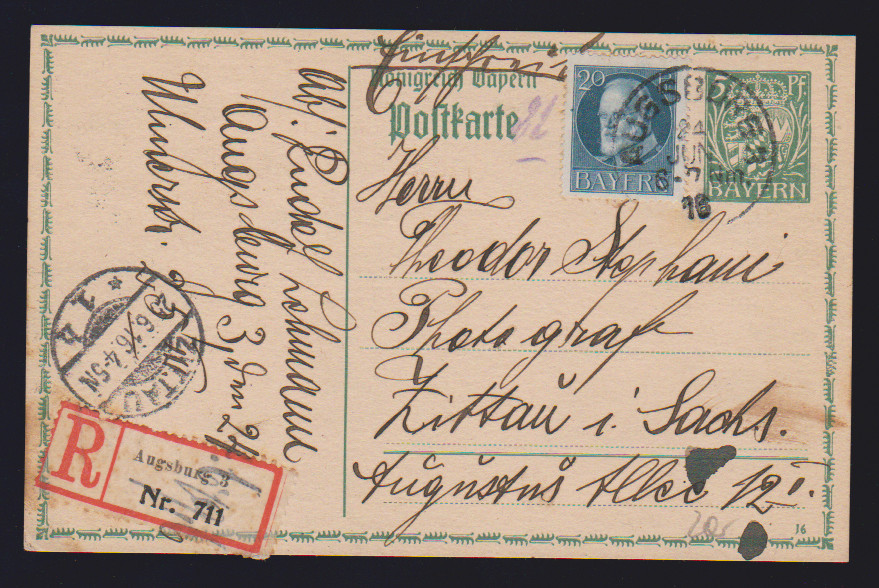 Einschreiben
Königreich Bayern
Postkarte
20
BAYERN
5 Pf
BAYERN
AUGSBURG
24
JUN
6-7 Nm
16
Herrn
Theodor Stephani
Photograf
Zittau i. Sachs.
Augustus Allee 12 I
16
Abs. Rudolf Lehmann
Augsburg 3, den 24.
Ulmerstr.
ZITTAU
6.16.4-5N
R
Augsburg 3
Nr. 711